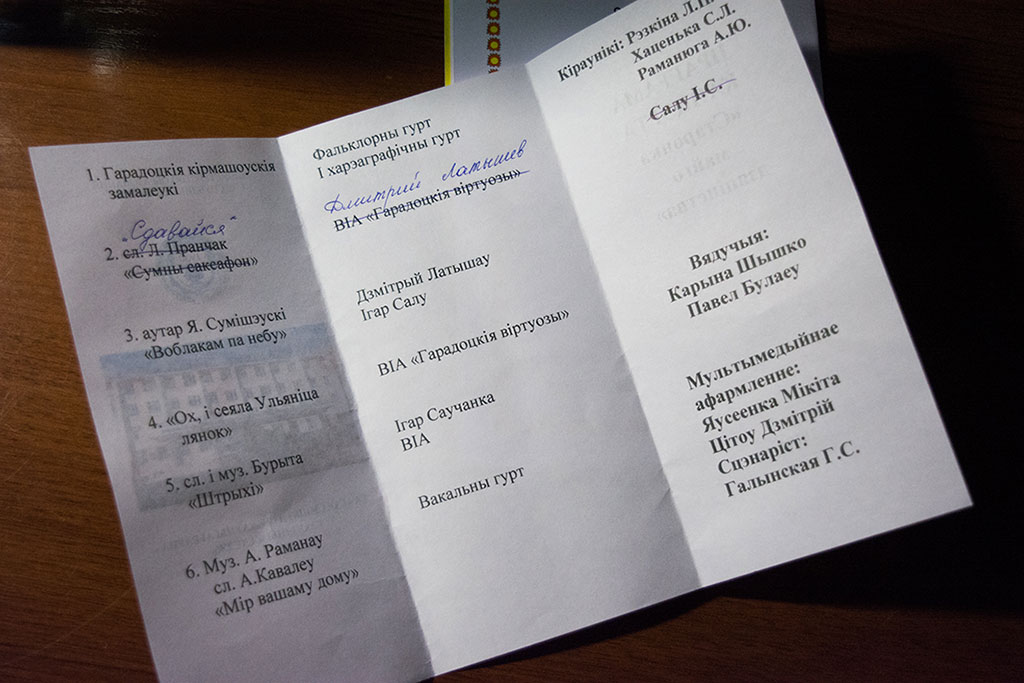 1. Гарадоцкія кірмашоускія
замалеукі
„Сдавайся"
2. сл. Л. Пранчак
«Сумны саксафон»
3. аутар Я. Сумішэускі
«Воблакам па небу»
4. «Ох, і сеяла Ульяніца
лянок»
5. сл. і муз. Бурыта
«Штрыхі»
6. Муз. А. Раманау
сл. А.Кавалеу
«Мір вашаму дому»
Фальклорны гурт
І харэаграфічны гурт
Дмитрий Латышев
ВІА «Гарадоцкія віртуозы»
Дзмітрый Латышау
Ігар Салу
ВІА «Гарадоцкія віртуозы»
Ігар Саучанка
ВІА
Вакальны гурт
Кіраунікі: Рэзкіна
Хаценька С.Л.
Раманюга А.Ю.
Салу І.С.
Вядучыя:
Карына Шышко
Павел Булаеу
Мультымедыйнае
афармленне:
Яусеенка Мікіта
Цітоу Дзмітрій
Сцэнарыст:
Галынская Г.С.